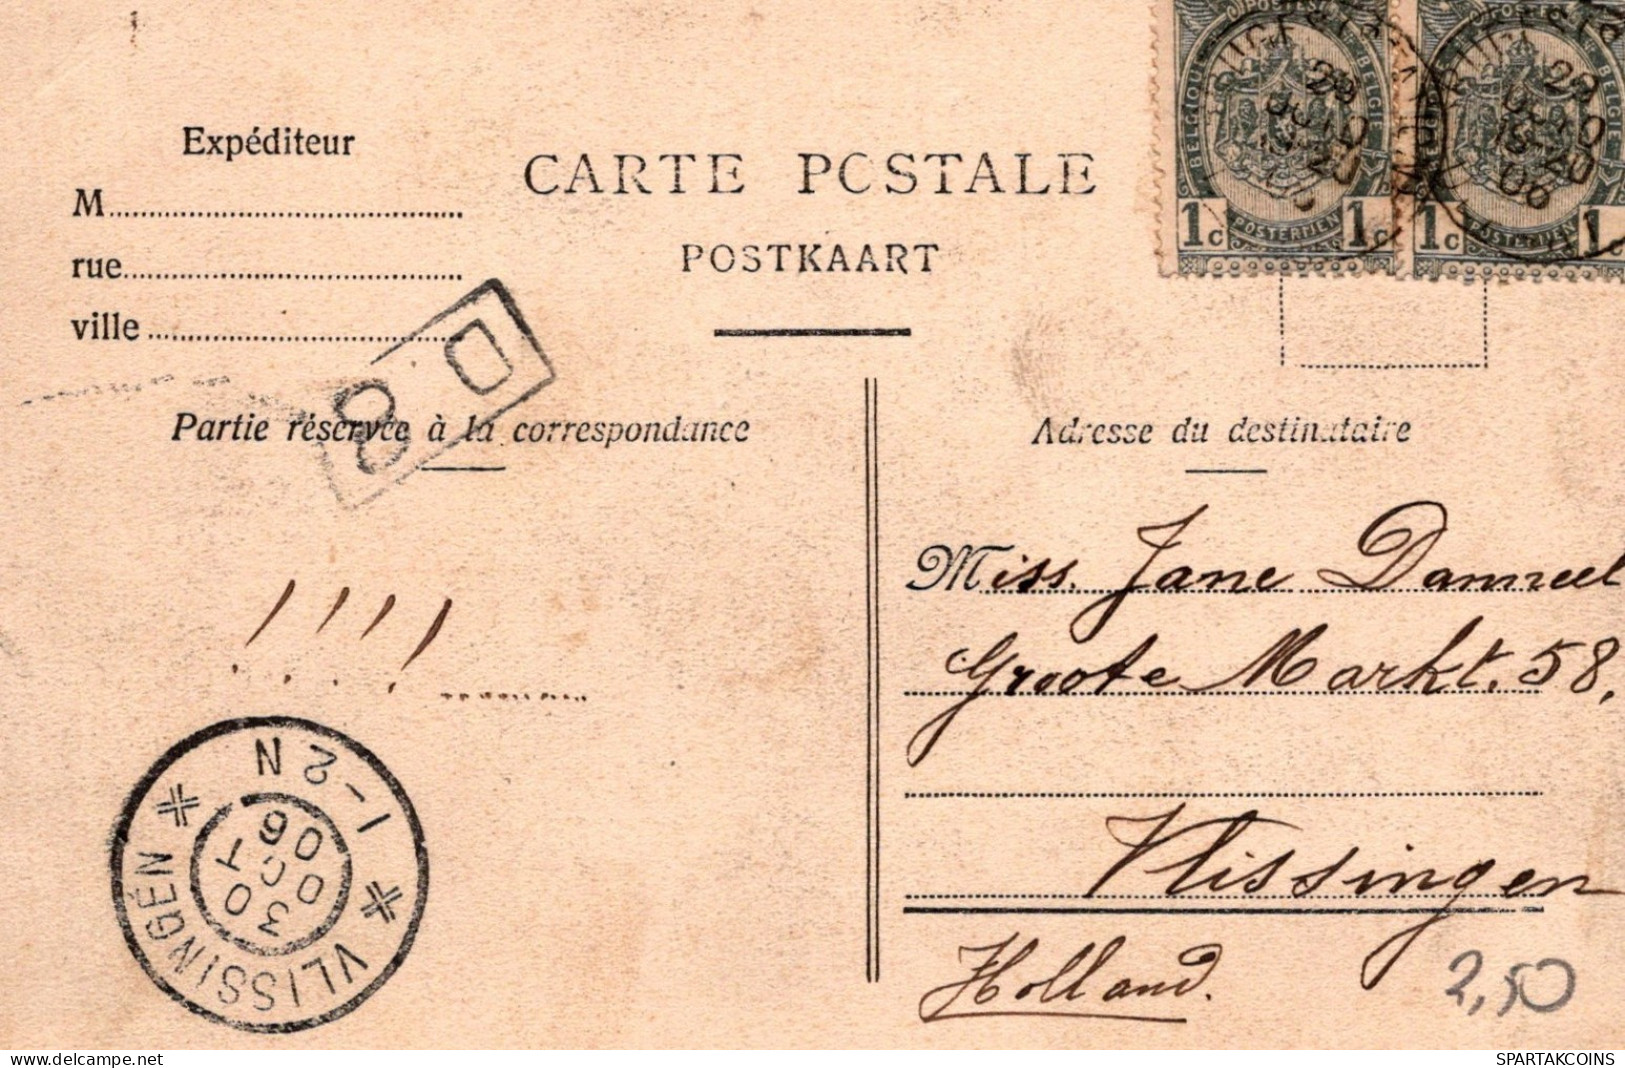 Expéditeur
M
rue
ville
CARTE POSTALE
POSTKAART
BELGIQUE BELGIË
POSTERIJEN
1c 1c
BELGIË
POSTERIJEN
1c 1c
29
06
D
8
Partie réservée à la correspondance
Adresse du destinataire
! ! ! !
Miss. Jane Dammeel
Groote Markt. 58,
Vlissingen
Holland.
VLISSINGEN
1-2 N
30 OCT 06
2,50
SPARTAKCOINS